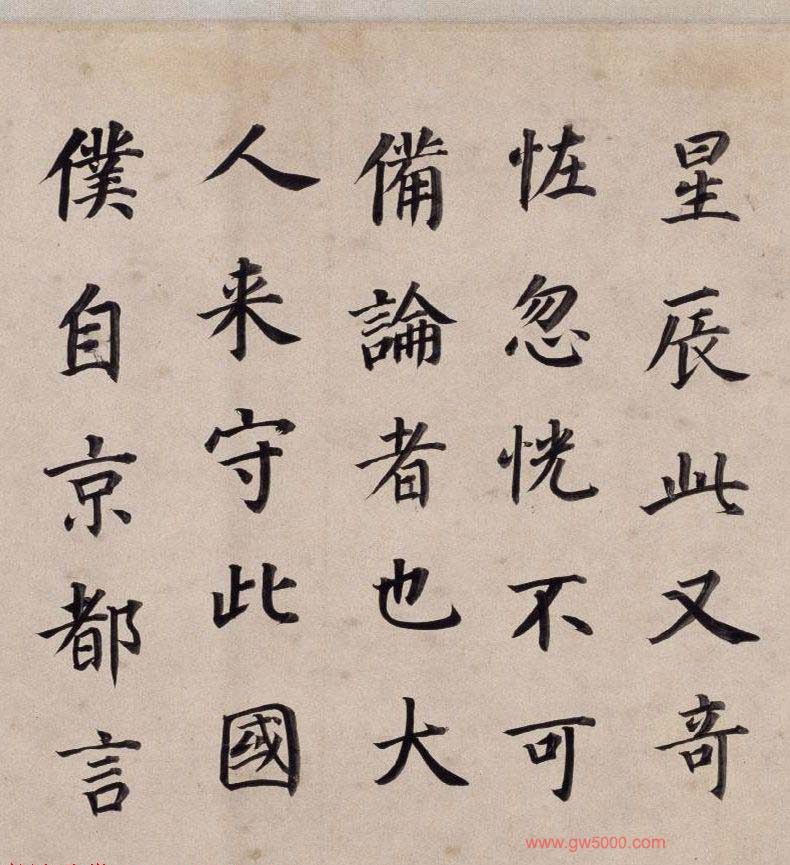 星辰此又奇
恠忽恍不可
備論者也大
人来守此國
僕自京都言
www.gw5000.com